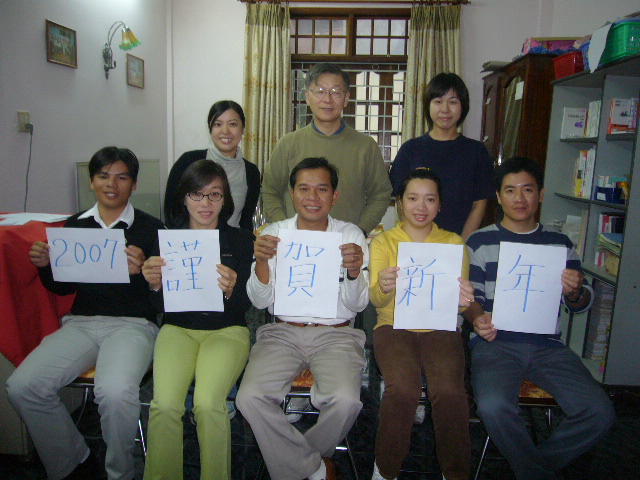 2007 謹 賀 新 年